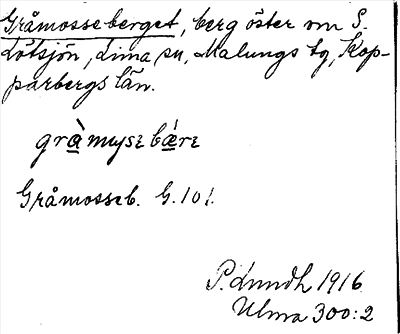 Gråmosseberget, berg öster om S.
Lötsjön, Lima sn, Malungs tg, Kop-
parbergs län.
gràmysɛbǽrɛ
Gråmosseb. G. 101.
P. Lundh 1916
Ulma 300:2